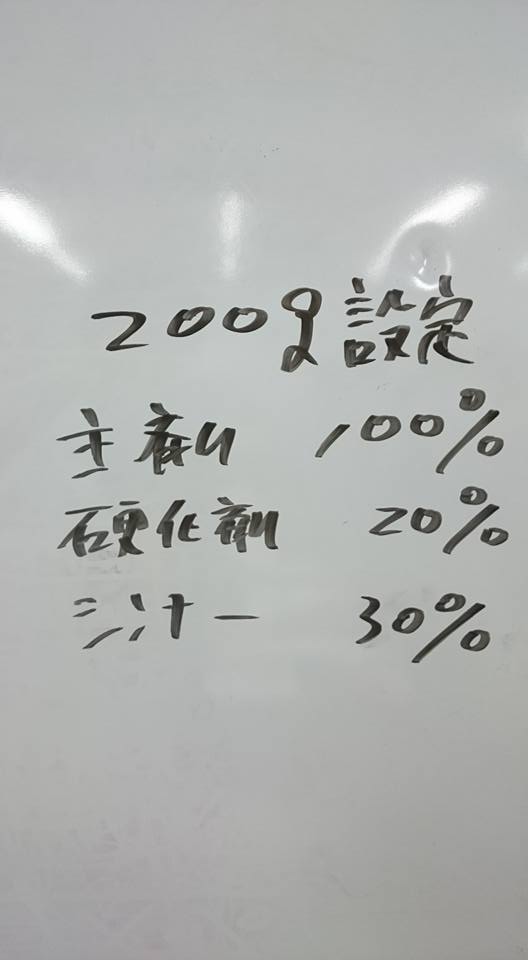 200g設定
主剤 100%
硬化剤 20%
シンナー 30%